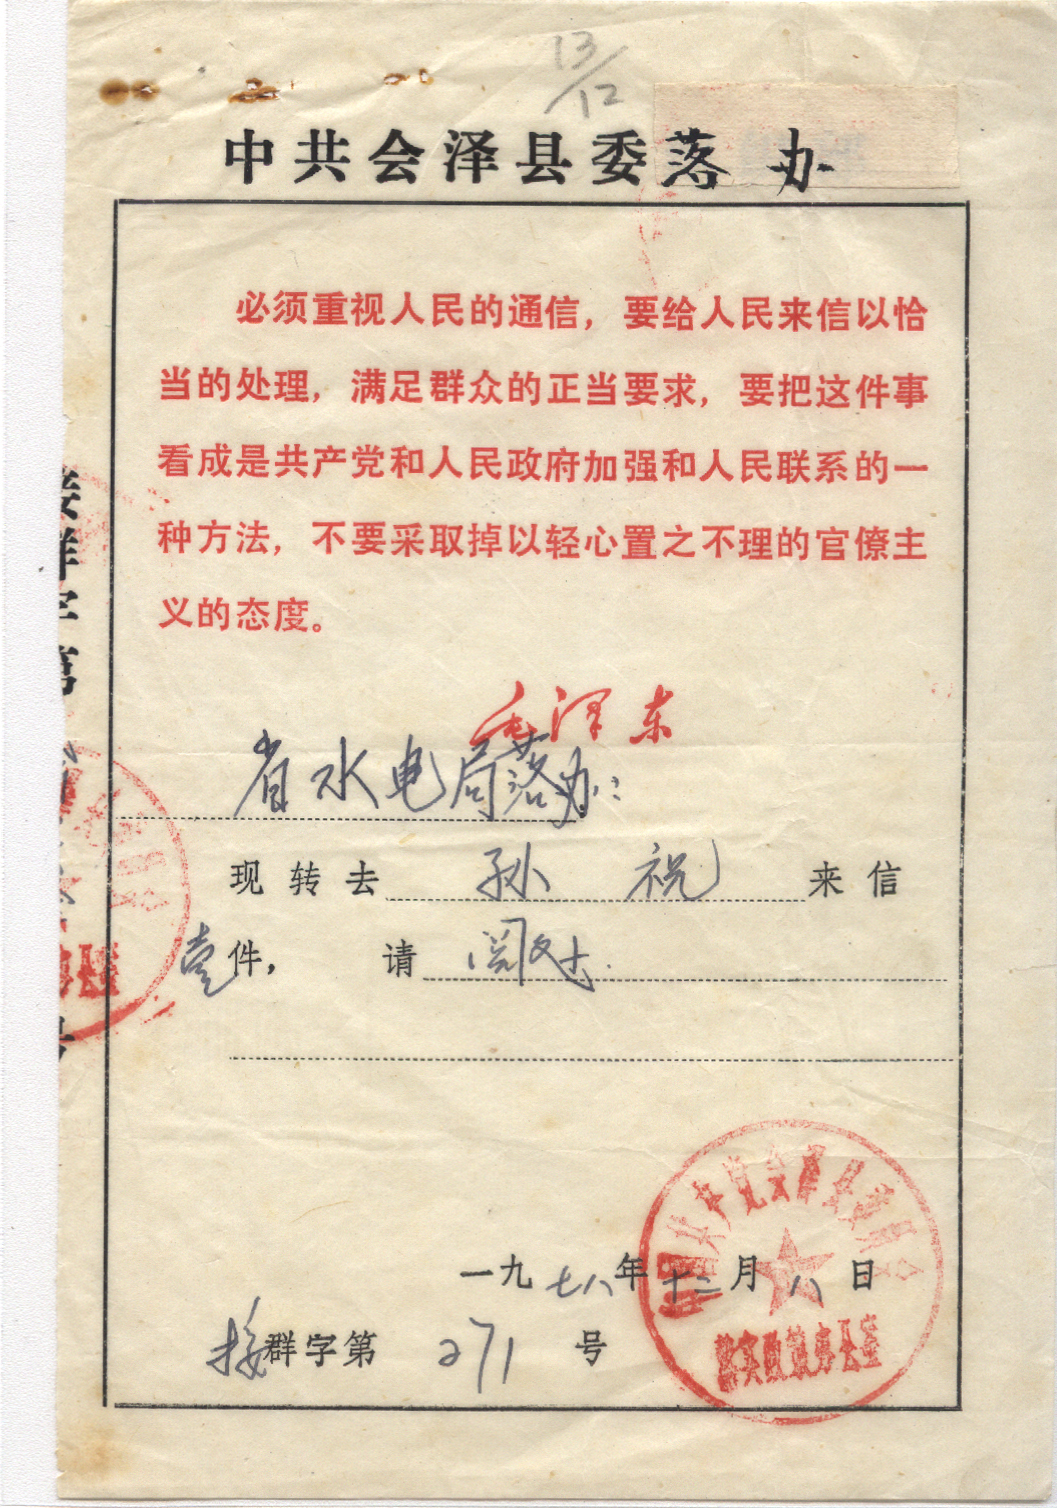 13/12
中共会泽县委落办
必须重视人民的通信，要给人民来信以恰
当的处理，满足群众的正当要求，要把这件事
看成是共产党和人民政府加强和人民联系的一
种方法，不要采取掉以轻心置之不理的官僚主
义的态度。
毛泽东
省水电局落办：
现转去 孙 祝 来信
壹件， 请 阅处.
一九七八年十二月八日
接群字第 271 号
中国共产党会泽县委员会
落实政策办公室
接群字第
号